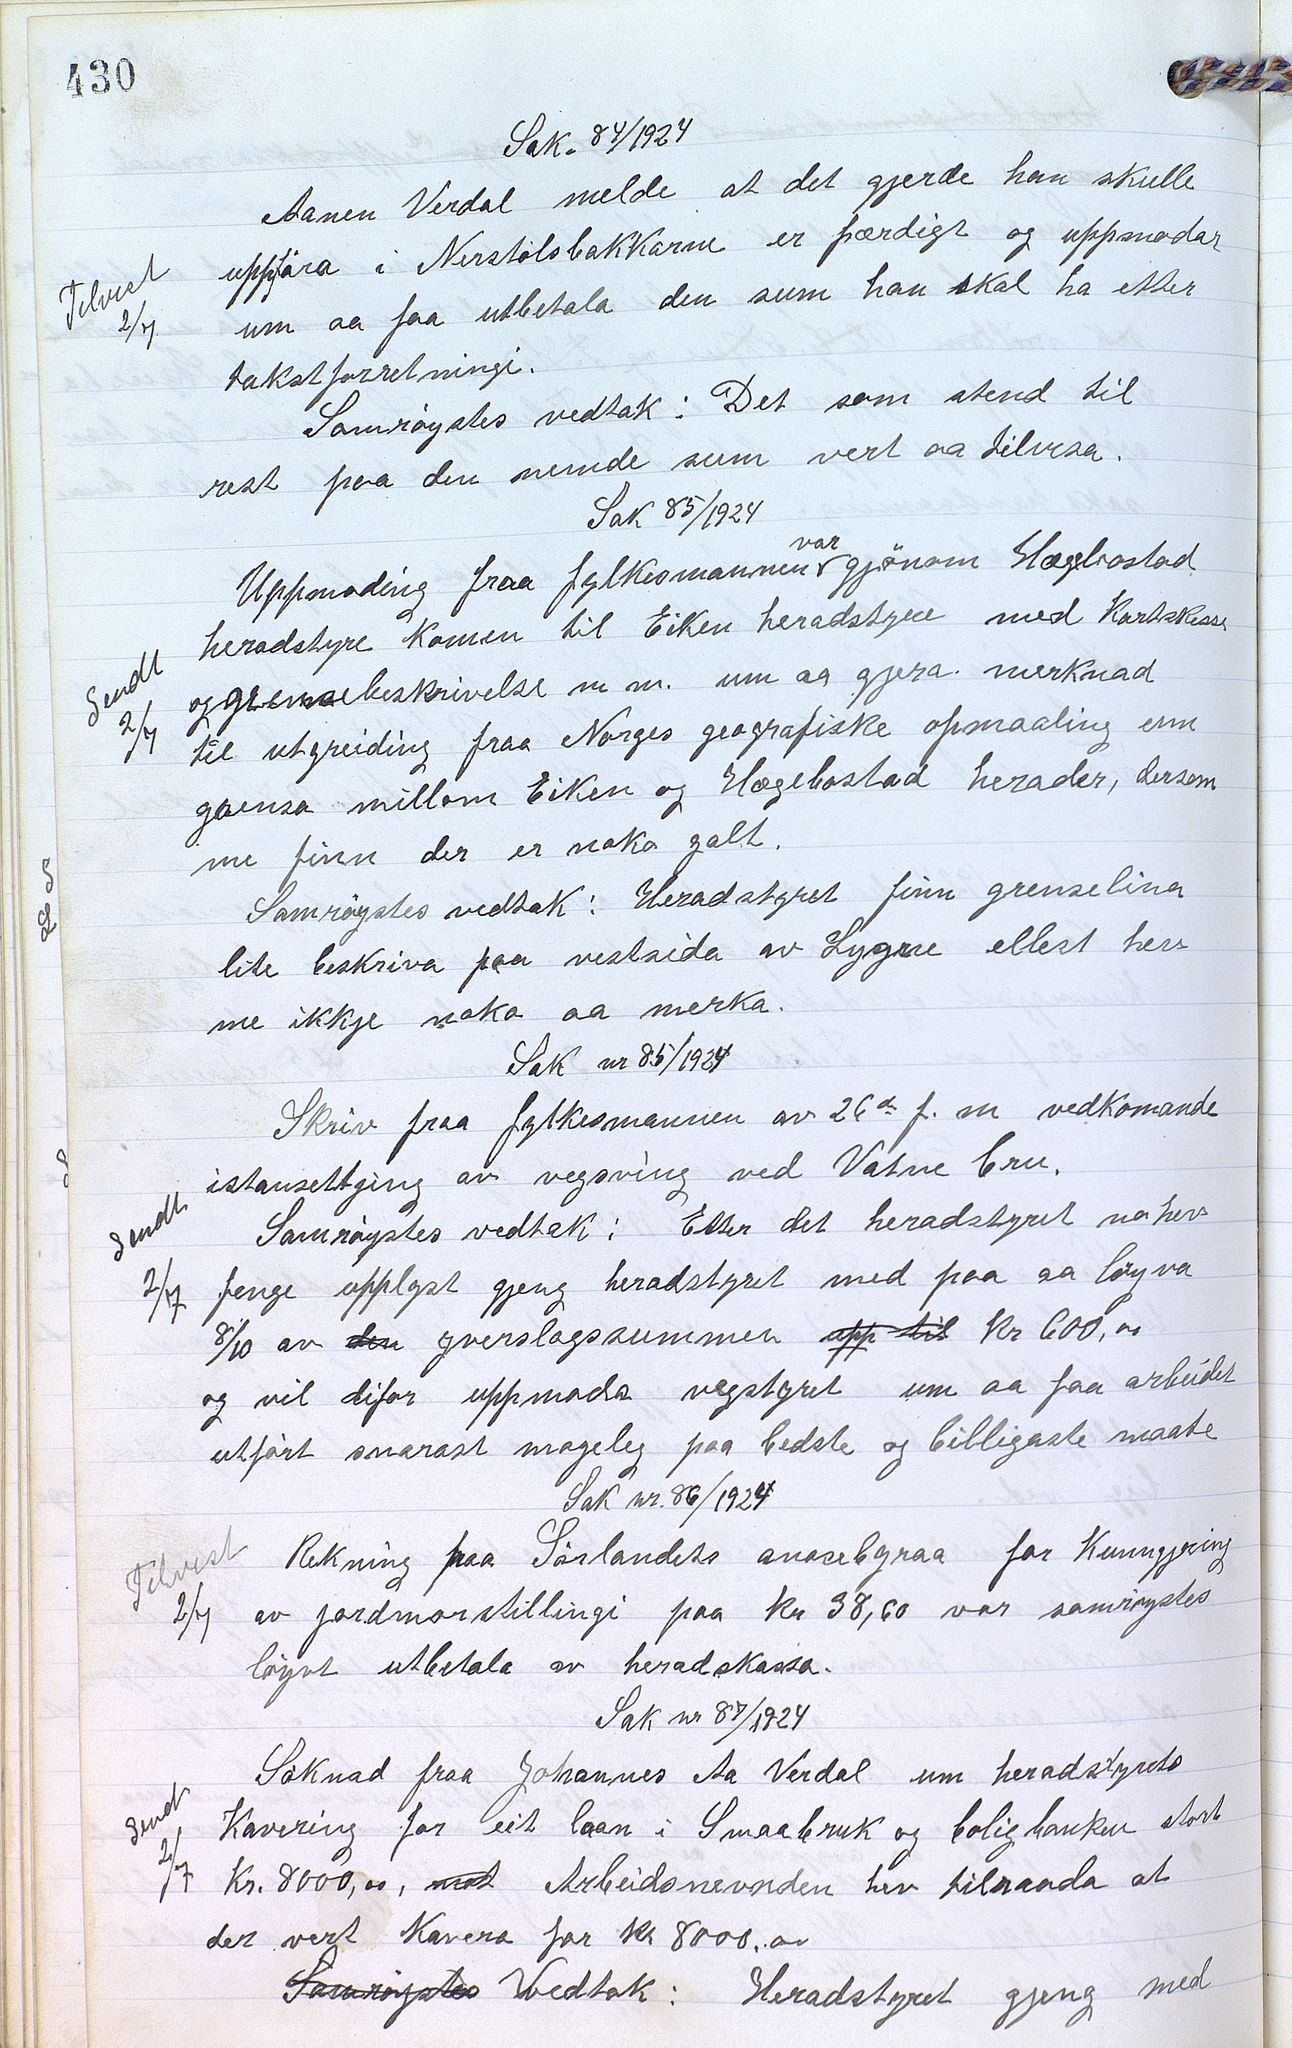 430
Sak. 84/1924
Aanen Verdal melde at det gjerde han skulle
uppföra i Nerstölsbakkarne er færdigt og uppmodar
Tilvist
2/7
um aa faa utbetala den sum han skal ha etter
takstforretningi.
Samröystes vedtak: Det som stend til
rest paa den nemde sum vert aa tilvisa.
Sak 85/1924
Uppmoding fraa fylkesmannen var gjönom Hægebostad
heradstyre komen til Eiken heradstyre med kartskisse
Sendt
2/7
og grensebeskrivelse m m. um aa gjera merknad
til utgreiding fraa Norges geografiske opmaaling um
grensa millom Eiken og Hægebostad herader, dersom
me finn der er noko galt.
Samröystes vedtak: Heradstyret finn grenselina
lite beskriva paa vestsida av Lygne ellest hev
me ikkje noko aa merka.
Sak nr 85/1924
Skriv fraa fylkesmannen av 26 ds f. m vedkomande
istansettjing av vegsving ved Vatne bru.
Sendt
2/7
Samröystes vedtak: Etter det heradstyret no hev
fenge upplyst gjeng heradstyret med paa aa löyva
8/10 av den yverslagssummen upp til kr 600,00
og vil difor uppmoda vegstyret um aa faa arbeidet
utfört snarast mogeleg paa bedste og billigaste maate
Sak nr. 86/1924
Tilvist
2/7
Rekning paa Sörlandets anocebyraa for kunngjering
av jordmorstillingi paa kr 38,60 var samröystes
löyvt utbetala av heradskassa.
Sak nr 87/1924
Söknad fraa Johannes Aa Verdal um heradstyrets
Sendt
2/7
kavering for eit laan i Smaabruk og boligbanken stort
kr. 8000,00, mot Arbeidsnevnden hev tilraada at
der vert kavera for kr 8000,00
Samröystes Vedtak: Heradstyret gjeng med